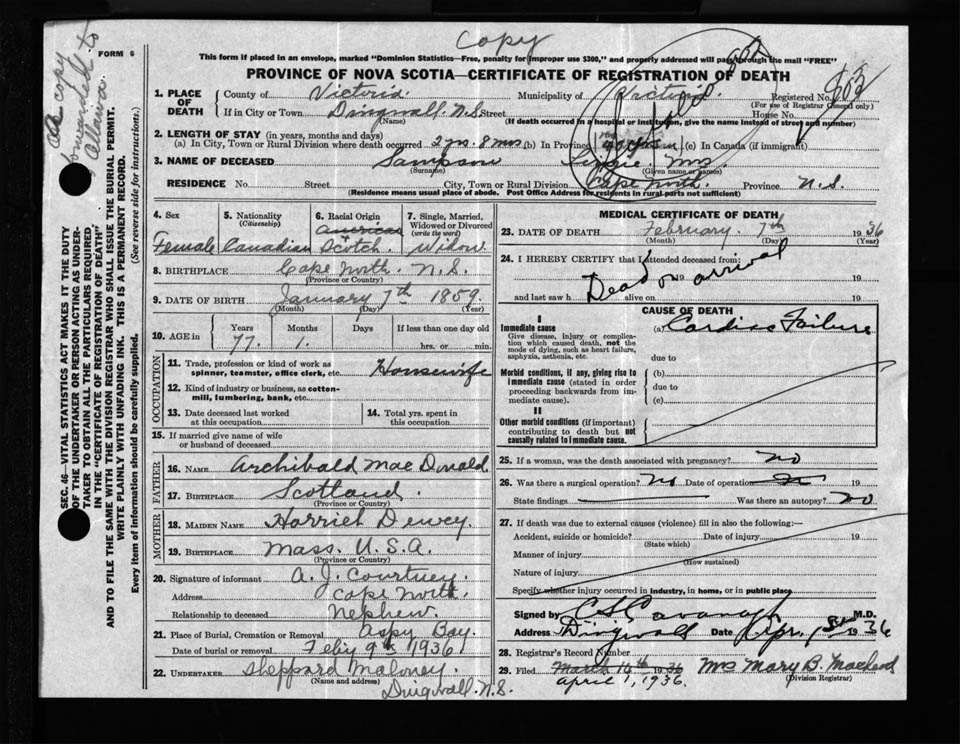 Copy
FORM 6
This form if placed in an envelope, marked "Dominion Statistics—Free, penalty for improper use $300," and properly addressed will pass through the mail "FREE"
PROVINCE OF NOVA SCOTIA—CERTIFICATE OF REGISTRATION OF DEATH
1. PLACE OF DEATH
County of Victoria Municipality of Victoria Registered No. 803
(For use of Registrar General only)
If in City or Town Dingwall N.S. Street House No.
(Name) (If death occurred in a hospital or institution, give the name instead of street and number)
2. LENGTH OF STAY (in years, months and days)
(a) In City, Town or Rural Division where death occurred 2 yrs. 8 mos (b) In Province (c) In Canada (if immigrant)
3. NAME OF DECEASED Sampson Lizzie Mrs.
(Surname) (Given name or names)
RESIDENCE No. Street City, Town or Rural Division Cape North. Province N.S.
(Residence means usual place of abode. Post Office Address for residents in rural parts not sufficient)
4. Sex
Female
5. Nationality
(Citizenship)
Canadian
6. Racial Origin
American
Scotch
7. Single, Married, Widowed or Divorced
(write the word)
Widow
8. BIRTHPLACE Cape North. N.S.
(Province or Country)
9. DATE OF BIRTH January 7th 1859.
(Month) (Day) (Year)
10. AGE in Years Months Days If less than one day old
77. 1. hrs. or min.
OCCUPATION
11. Trade, profession or kind of work as spinner, teamster, office clerk, etc. Housewife
12. Kind of industry or business, as cotton-mill, lumbering, bank, etc.
13. Date deceased last worked at this occupation
14. Total yrs. spent in this occupation
15. If married give name of wife or husband of deceased
FATHER
16. NAME Archibald MacDonald
17. BIRTHPLACE Scotland.
(Province or Country)
MOTHER
18. MAIDEN NAME Harriet Dewey.
19. BIRTHPLACE Mass. U.S.A.
(Province or Country)
20. Signature of informant A. J. Courtney.
Address Cape North.
Relationship to deceased Nephew.
21. Place of Burial, Cremation or Removal Aspy Bay.
Date of burial or removal Feby 9th 1936
22. UNDERTAKER Sheppard Maloney.
(Name and address)
Dingwall. N.S.
MEDICAL CERTIFICATE OF DEATH
23. DATE OF DEATH February. 7th 1936
(Month) (Day) (Year)
24. I HEREBY CERTIFY that I attended deceased from:
19 19
Dead on arrival
and last saw h alive on 19
CAUSE OF DEATH
I
Immediate cause (a) Cardiac Failure
Give disease, injury or complication which caused death, not the mode of dying, such as heart failure, asphyxia, asthenia, etc.
due to
Morbid conditions, if any, giving rise to immediate cause (stated in order proceeding backwards from immediate cause).
(b)
due to
(c)
II
Other morbid conditions (if important) contributing to death but not causally related to immediate cause.
25. If a woman, was the death associated with pregnancy? no
26. Was there a surgical operation? no Date of operation 19
State findings Was there an autopsy? no
27. If death was due to external causes (violence) fill in also the following:—
Accident, suicide or homicide? Date of injury 19
(State which)
Manner of injury
(How sustained)
Nature of injury
Specify whether injury occurred in industry, in home, or in public place
Signed by C S Cavanagh M.D.
Address Dingwall Date Apr. 1st 1936
28. Registrar's Record Number
29. Filed March 16th 1936 Mrs Mary B. Macleod
(Division Registrar)
April 1, 1936.
SEC. 46—VITAL STATISTICS ACT MAKES IT THE DUTY OF THE UNDERTAKER OR PERSON ACTING AS UNDERTAKER TO OBTAIN ALL THE PARTICULARS REQUIRED IN THE "CERTIFICATE OF REGISTRATION OF DEATH" AND TO FILE THE SAME WITH THE DIVISION REGISTRAR WHO SHALL ISSUE THE BURIAL PERMIT.
WRITE PLAINLY WITH UNFADING INK. THIS IS A PERMANENT RECORD.
Every item of Information should be carefully supplied. (See reverse side for instructions.)
copy
forwarded to